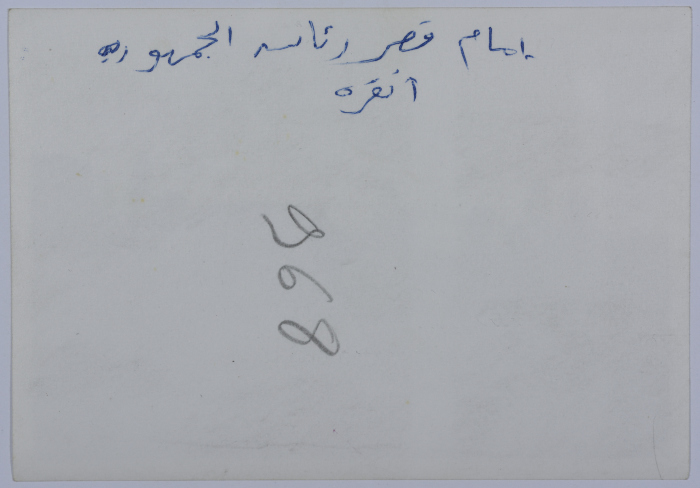 امام قصر رئاسه الجمهوريه
أنقره
868